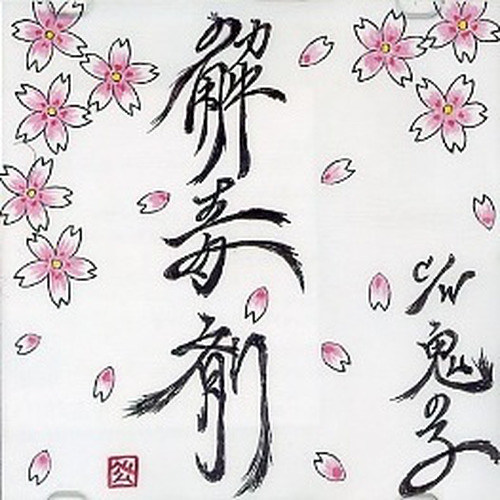 解毒剤
c/w 鬼子